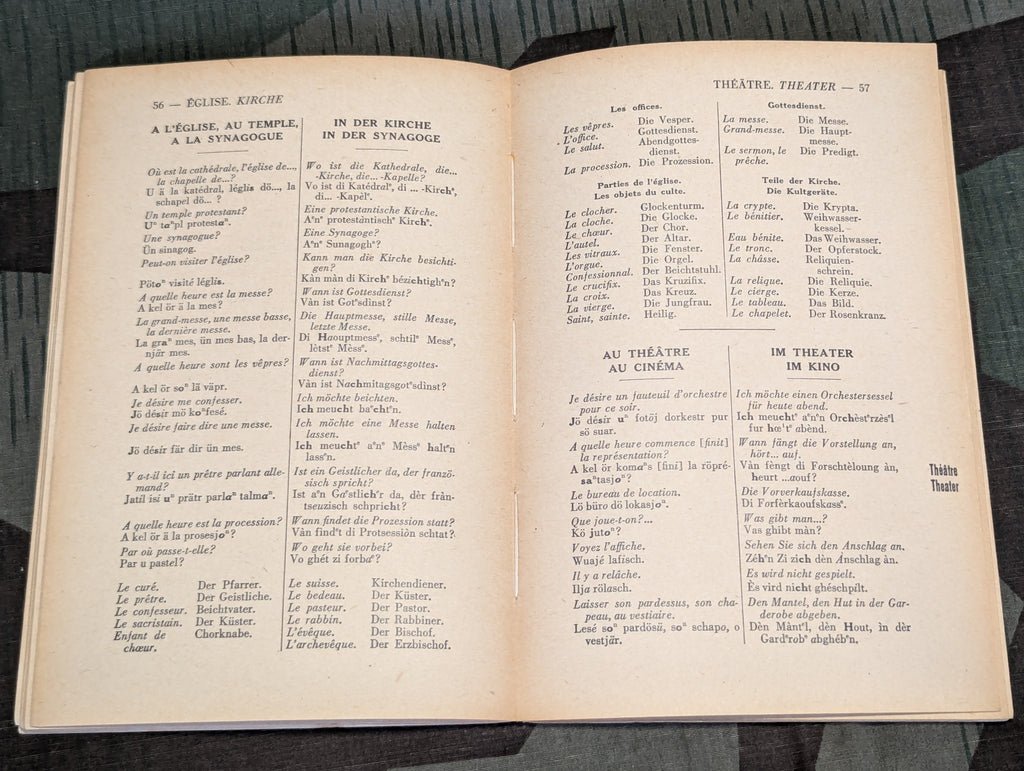 56 — ÉGLISE. KIRCHE
A L'ÉGLISE, AU TEMPLE,
A LA SYNAGOGUE
Où est la cathédrale, l'église de...,
la chapelle de...?
U ä la katédral, léglis dö..., la
schapel dö... ?
Un temple protestant?
Uⁿ taⁿpl protestaⁿ.
Une synagogue?
Ün sinagog.
Peut-on visiter l'église?
Pötoⁿ visité léglis.
A quelle heure est la messe?
A kel ör ä la mes?
La grand-messe, une messe basse,
la dernière messe.
La graⁿ mes, ün mes bas, la der-
njär mes.
A quelle heure sont les vêpres?
A kel ör soⁿ lä väpr.
Je désire me confesser.
Jö désir mö koⁿfesé.
Je désire faire dire une messe.
Jö désir fär dir ün mes.
Y a-t-il ici un prêtre parlant alle-
mand?
Jatil isi uⁿ prätr parlaⁿ talmaⁿ.
A quelle heure est la procession?
A kel ör ä la prosesjoⁿ?
Par où passe-t-elle?
Par u pastel?
IN DER KIRCHE
IN DER SYNAGOGE
Wo ist die Kathedrale, die...
-Kirche, die... -Kapelle?
Vo ist di Katédralᵉ, di ... -Kirchᵉ,
di... -Kapèlᵉ.
Eine protestantische Kirche.
Aᵉnᵉ protestàntischᵉ Kirchᵉ.
Eine Synagoge?
Aᵉnᵉ Sunagoghᵉ?
Kann man die Kirche besichti-
gen?
Kàn màn di Kirchᵉ béziehtighᵉn?
Wann ist Gottesdienst?
Vàn ist Gotᵉsdinst?
Die Hauptmesse, stille Messe,
letzte Messe.
Di Haouptmessᵉ, schtilᵉ Messᵉ,
lètstᵉ Mèssᵉ.
Wann ist Nachmittagsgottes-
dienst?
Vàn ist Nachmitagsgotᵉsdinst?
Ich möchte beichten.
Ich meucht baᵉchtᵉn.
Ich möchte eine Messe halten
lassen.
Ich meuchtᵉ aᵉnᵉ Mèssᵉ haltᵉn
lassᵉn.
Ist ein Geistlicher da, der franzö-
sisch spricht?
Ist aᵉn Gaᵉstlichᵉr da, dèr fràn-
tseuzisch schpricht?
Wann findet die Prozession statt?
Vàn findᵉt di Protsession schtat?
Wo geht sie vorbei?
Vo ghét zi forbaᵉ?
Le curé. Der Pfarrer.
Le prêtre. Der Geistliche.
Le confesseur. Beichtvater.
Le sacristain. Der Küster.
Enfant de Chorknabe.
chœur.
Le suisse. Kirchendiener.
Le bedeau. Der Küster.
Le pasteur. Der Pastor.
Le rabbin. Der Rabbiner.
L'évêque. Der Bischof.
L'archevêque. Der Erzbischof.
THÉÂTRE. THEATER — 57
Les offices.
Les vêpres. Die Vesper.
L'office. Gottesdienst.
Le salut. Abendgottes-
dienst.
La procession. Die Prozession.
Gottesdienst.
La messe. Die Messe.
Grand-messe. Die Haupt-
messe.
Le sermon, le Die Predigt.
prêche.
Parties de l'église.
Les objets du culte.
Le clocher. Glockenturm.
La cloche. Die Glocke.
Le chœur. Der Chor.
L'autel. Der Altar.
Les vitraux. Die Fenster.
L'orgue. Die Orgel.
Confessionnal. Der Beichtstuhl.
Le crucifix. Das Kruzifix.
La croix. Das Kreuz.
La vierge. Die Jungfrau.
Saint, sainte. Heilig.
Teile der Kirche.
Die Kultgeräte.
La crypte. Die Krypta.
Le bénitier. Weihwasser-
kessel.
Eau bénite. Das Weihwasser.
Le tronc. Der Opferstock.
La châsse. Reliquien-
schrein.
La relique. Die Reliquie.
Le cierge. Die Kerze.
Le tableau. Das Bild.
Le chapelet. Der Rosenkranz.
AU THÉÂTRE
AU CINÉMA
Je désire un fauteuil d'orchestre
pour ce soir.
Jö désir uⁿ fotöj dorkestr pur
sö suar.
A quelle heure commence [finit]
la représentation?
A kel ör komaⁿs [fini] la röpré-
saⁿtasjoⁿ?
Le bureau de location.
Lö büro dö lokasjoⁿ.
Que joue-t-on?...
Kö jutoⁿ?
Voyez l'affiche.
Wuajé lafisch.
Il y a relâche.
Ilja rölasch.
Laisser son pardessus, son cha-
peau, au vestiaire.
Lesé soⁿ pardösü, soⁿ schapo, o
vestjär.
IM THEATER
IM KINO
Ich möchte einen Orchestersessel
für heute abend.
Ich meuchtᵉ aᵉnᵉn Orchèstᵉrzèsᵉl
fur hœᵉtᵉ abènd.
Wann fängt die Vorstellung an,
hört... auf.
Vàn fèngt di Forschtèloung àn,
heurt ...aouf?
Die Vorverkaufskasse.
Di Forfèrkaoufskassᵉ.
Was gibt man...?
Vas ghibt màn?
Sehen Sie sich den Anschlag an.
Zéhᵉn Zi zich dèn Ànschlag àn.
Es wird nicht gespielt.
Ès vird nicht ghéschpilt.
Den Mantel, den Hut in der Gar-
derobe abgeben.
Dèn Màntᵉl, dèn Hout, ìn dèr
Gardᵉrobᵉ abghébᵉn.
Théâtre
Theater